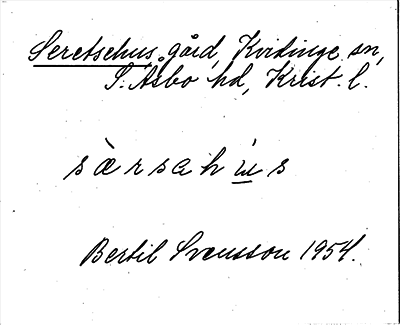 Seretsehus gård, Kvidinge sn,
S. Åsbo hd, Krist. l.
sæ̀rsahús
Bertil Svensson 1954.